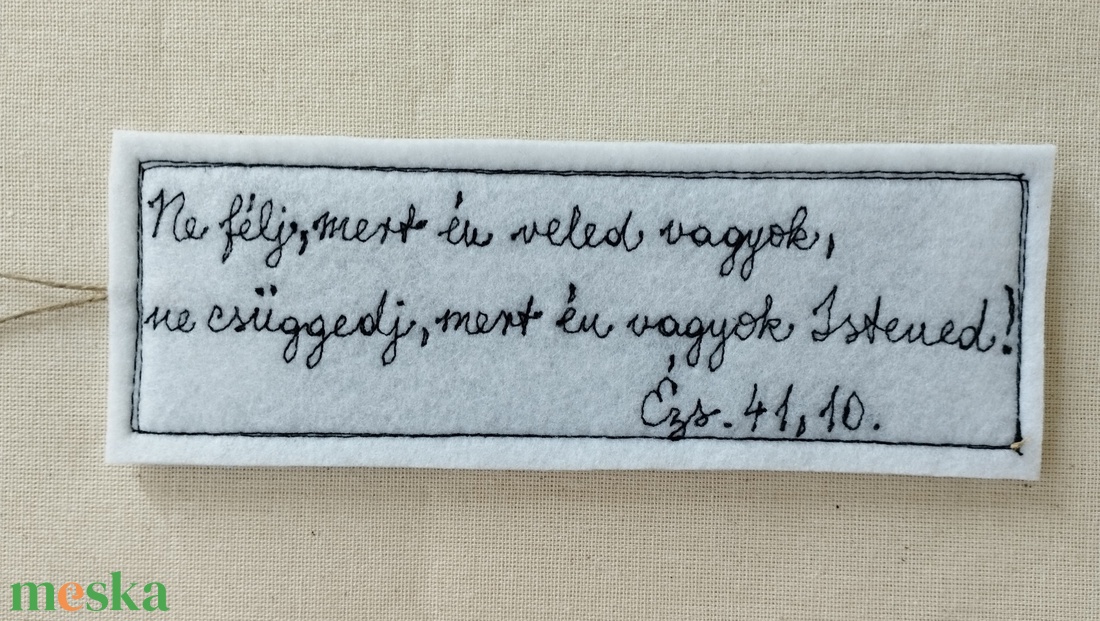 Ne félj, mert én veled vagyok,
ne csüggedj, mert én vagyok Istened!
Ézs. 41, 10.
meska